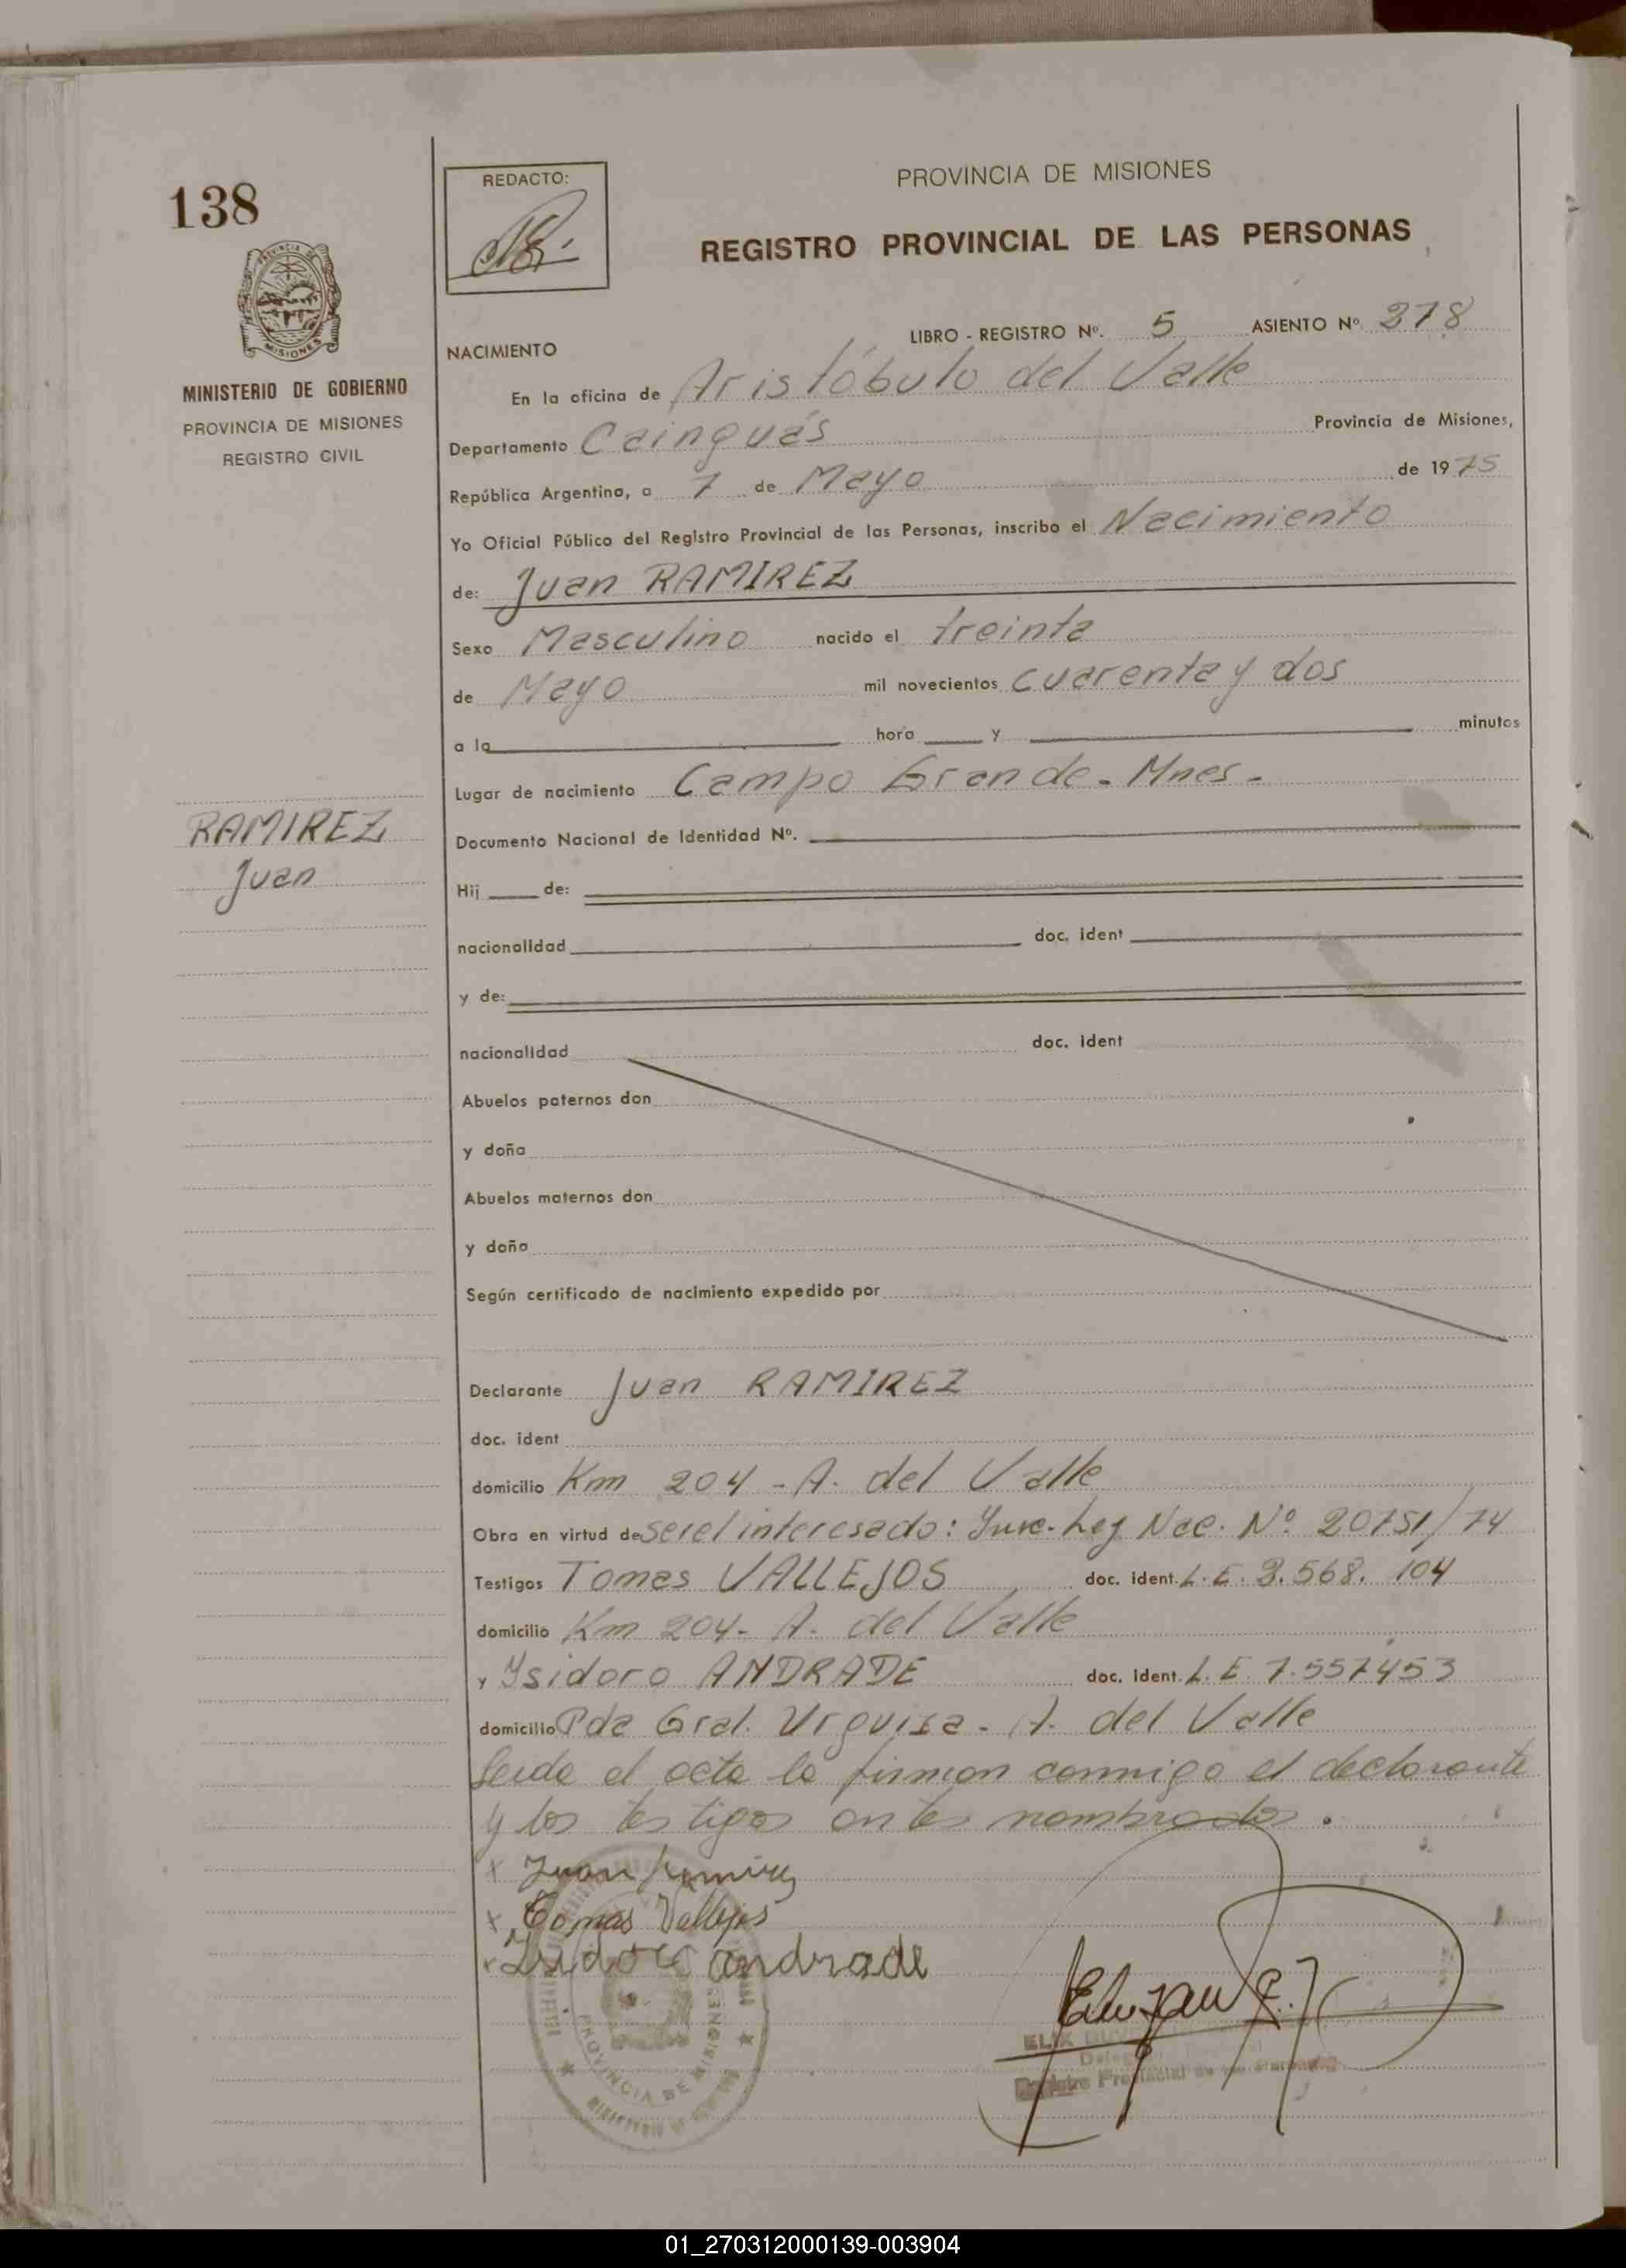 138
REDACTO:
PROVINCIA DE MISIONES
REGISTRO PROVINCIAL DE LAS PERSONAS
MISIONES
MINISTERIO DE GOBIERNO
PROVINCIA DE MISIONES
REGISTRO CIVIL
LIBRO - REGISTRO Nº. 5 ASIENTO Nº 378
NACIMIENTO
En la oficina de Aristóbulo del Valle
Departamento Cainguás Provincia de Misiones,
República Argentina, a 7 de Mayo de 1975
Yo Oficial Público del Registro Provincial de las Personas, inscribo el Nacimiento
de: Juan RAMIREZ
Sexo Masculino nacido el treinta
de Mayo mil novecientos cuarenta y dos
a la hora y minutos
Lugar de nacimiento Campo Grande - Mnes -
RAMIREZ
Juan
Documento Nacional de Identidad Nº.
Hij de:
nacionalidad doc. ident
y de:
nacionalidad doc. ident
Abuelos paternos don
y doña
Abuelos maternos don
y doña
Según certificado de nacimiento expedido por
Declarante Juan RAMIREZ
doc. ident
domicilio Km 204 - A. del Valle
Obra en virtud de ser el interesado: Insc. Ley Nac. Nº 20751/74
Testigos Tomas VALLEJOS doc. ident. L.E. 3.568.104
domicilio Km 204 - A. del Valle
y Ysidoro ANDRADE doc. ident. L.E. 7.557453
domicilio Pda Gral. Urquiza - A. del Valle
Leida el acta la firman conmigo el declarante
y los testigos antes nombrados.
x Juan Ramirez
x Tomas Vallejos
x Isidoro andrade
PROVINCIA DE MISIONES
Registro Provincial de las Personas
01_270312000139-003904